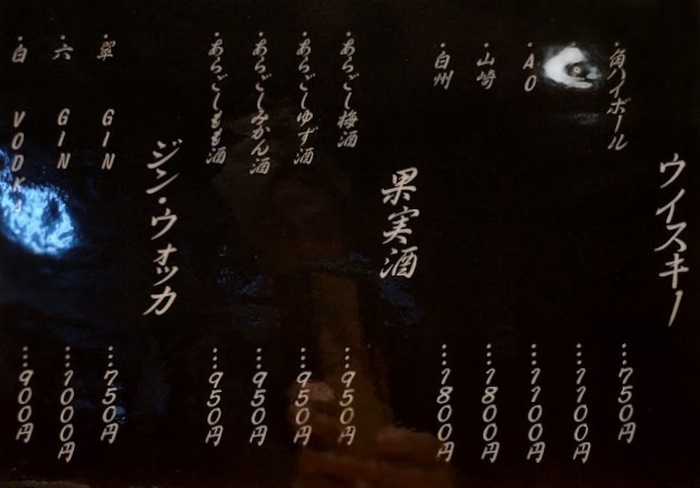 ウイスキー
・角ハイボール …750円
…1100円
・AO …1100円
・山崎 …1800円
・白州 …1800円
果実酒
・あらごし梅酒 …950円
・あらごしゆず酒 …950円
・あらごしみかん酒 …950円
・あらごしもも酒 …950円
ジン・ウォッカ
・翠 GIN …750円
・六 GIN …1000円
・白 VODKA …900円